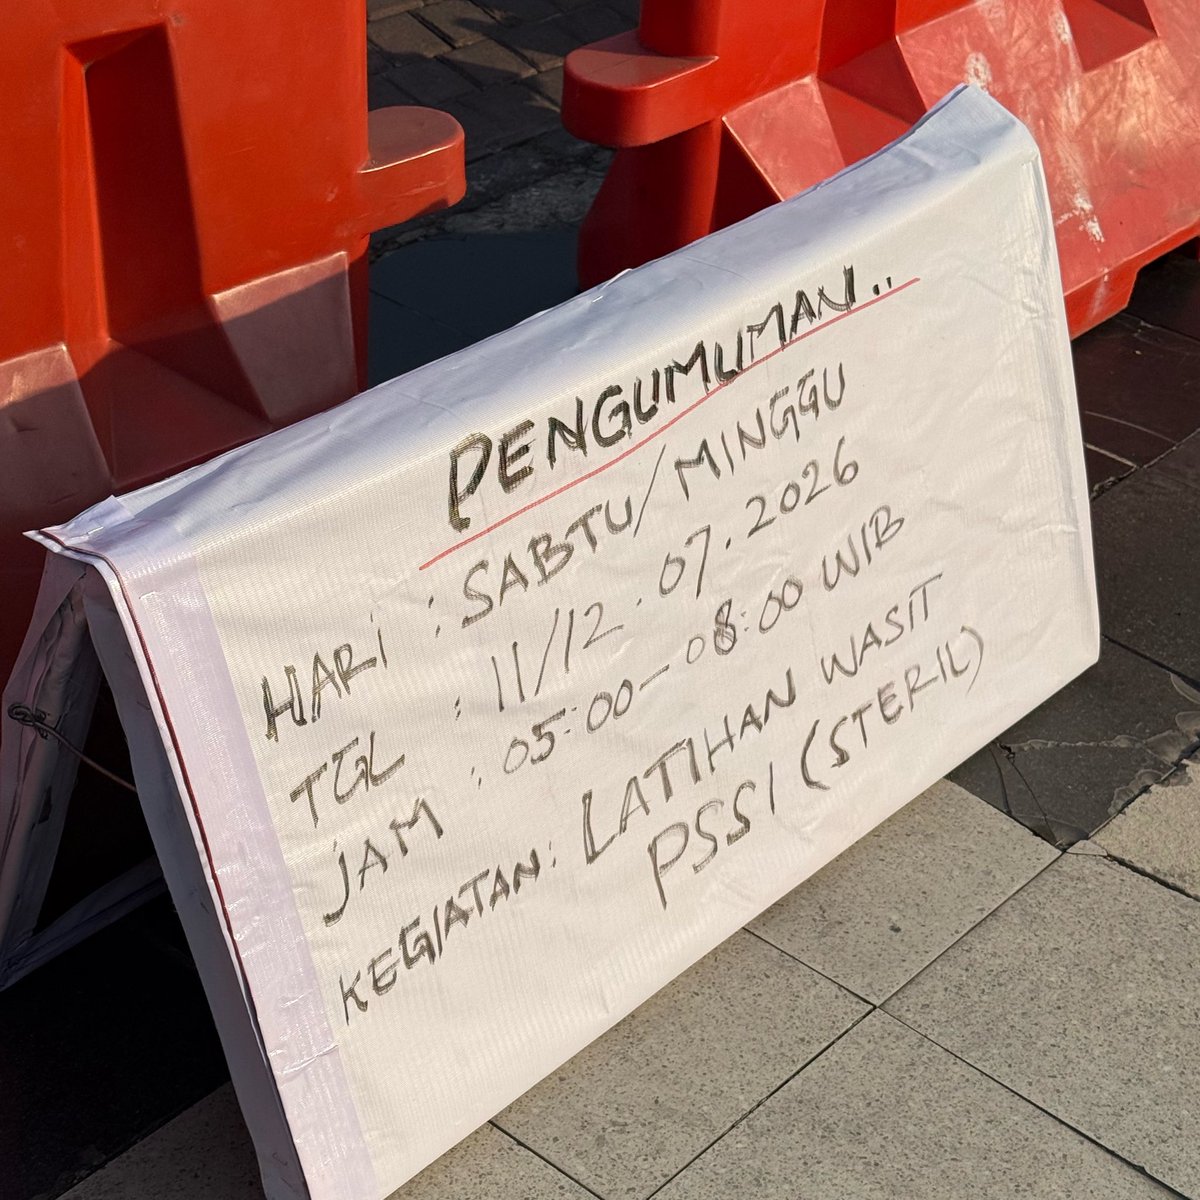 PENGUMUMAN..
HARI : SABTU/MINGGU
TGL : 11/12.07.2026
JAM : 05:00-08:00 WIB
KEGIATAN: LATIHAN WASIT
PSSI (STERIL)